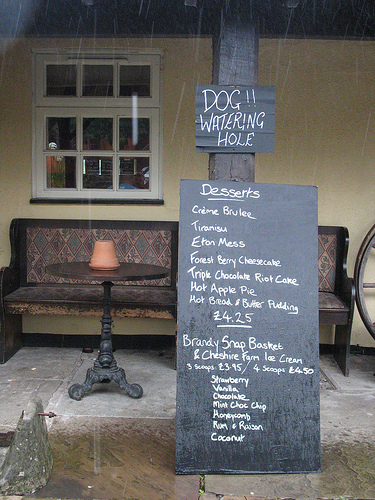 DOG!!
WATERING
HOLE
Desserts
Crème Brulee
Tiramisu
Eton Mess
Forest Berry Cheesecake
Triple Chocolate Riot Cake
Hot Apple Pie
Hot Bread & Butter Pudding
£4.25
Brandy Snap Basket
& Cheshire Farm Ice Cream
3 scoops £3.95 / 4 scoops £4.50
Strawberry
Vanilla
Chocolate
Mint Choc Chip
Honeycomb
Rum & Raison
Coconut